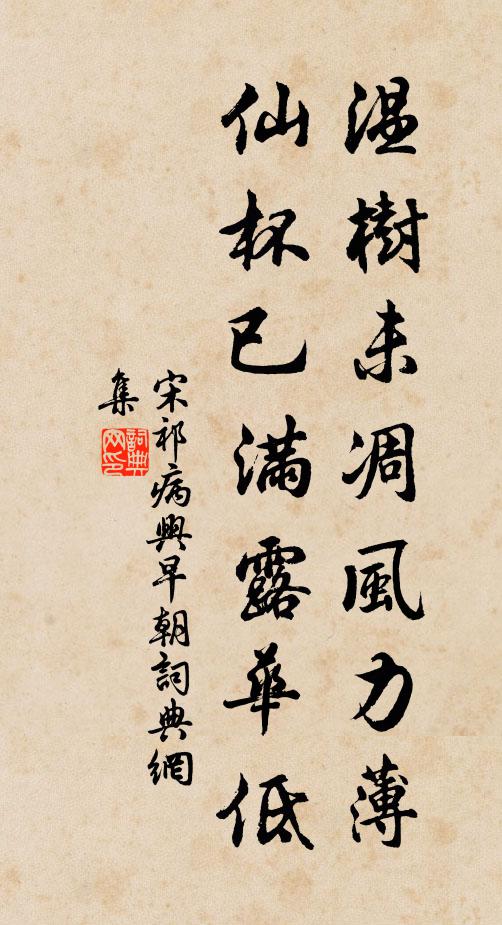 温樹未凋風力薄
仙杯已滿露華低
宋祁病興早朝詞典網
集
詞典
网印